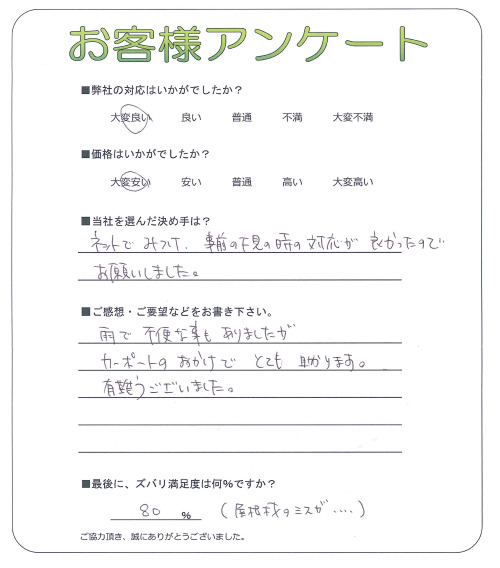 お客様アンケート
■弊社の対応はいかがでしたか？
大変良い 良い 普通 不満 大変不満
■価格はいかがでしたか？
大変安い 安い 普通 高い 大変高い
■当社を選んだ決め手は？
ネットで みつけ、事前の下見の時の対応が 良かったので
お願いしました。
■ご感想・ご要望などをお書き下さい。
雨で 不便な事も ありましたが
カーポートの おかげで とても 助かります。
有難うございました。
■最後に、ズバリ満足度は何%ですか？
80 % (屋根材のミスが....)
ご協力頂き、誠にありがとうございました。